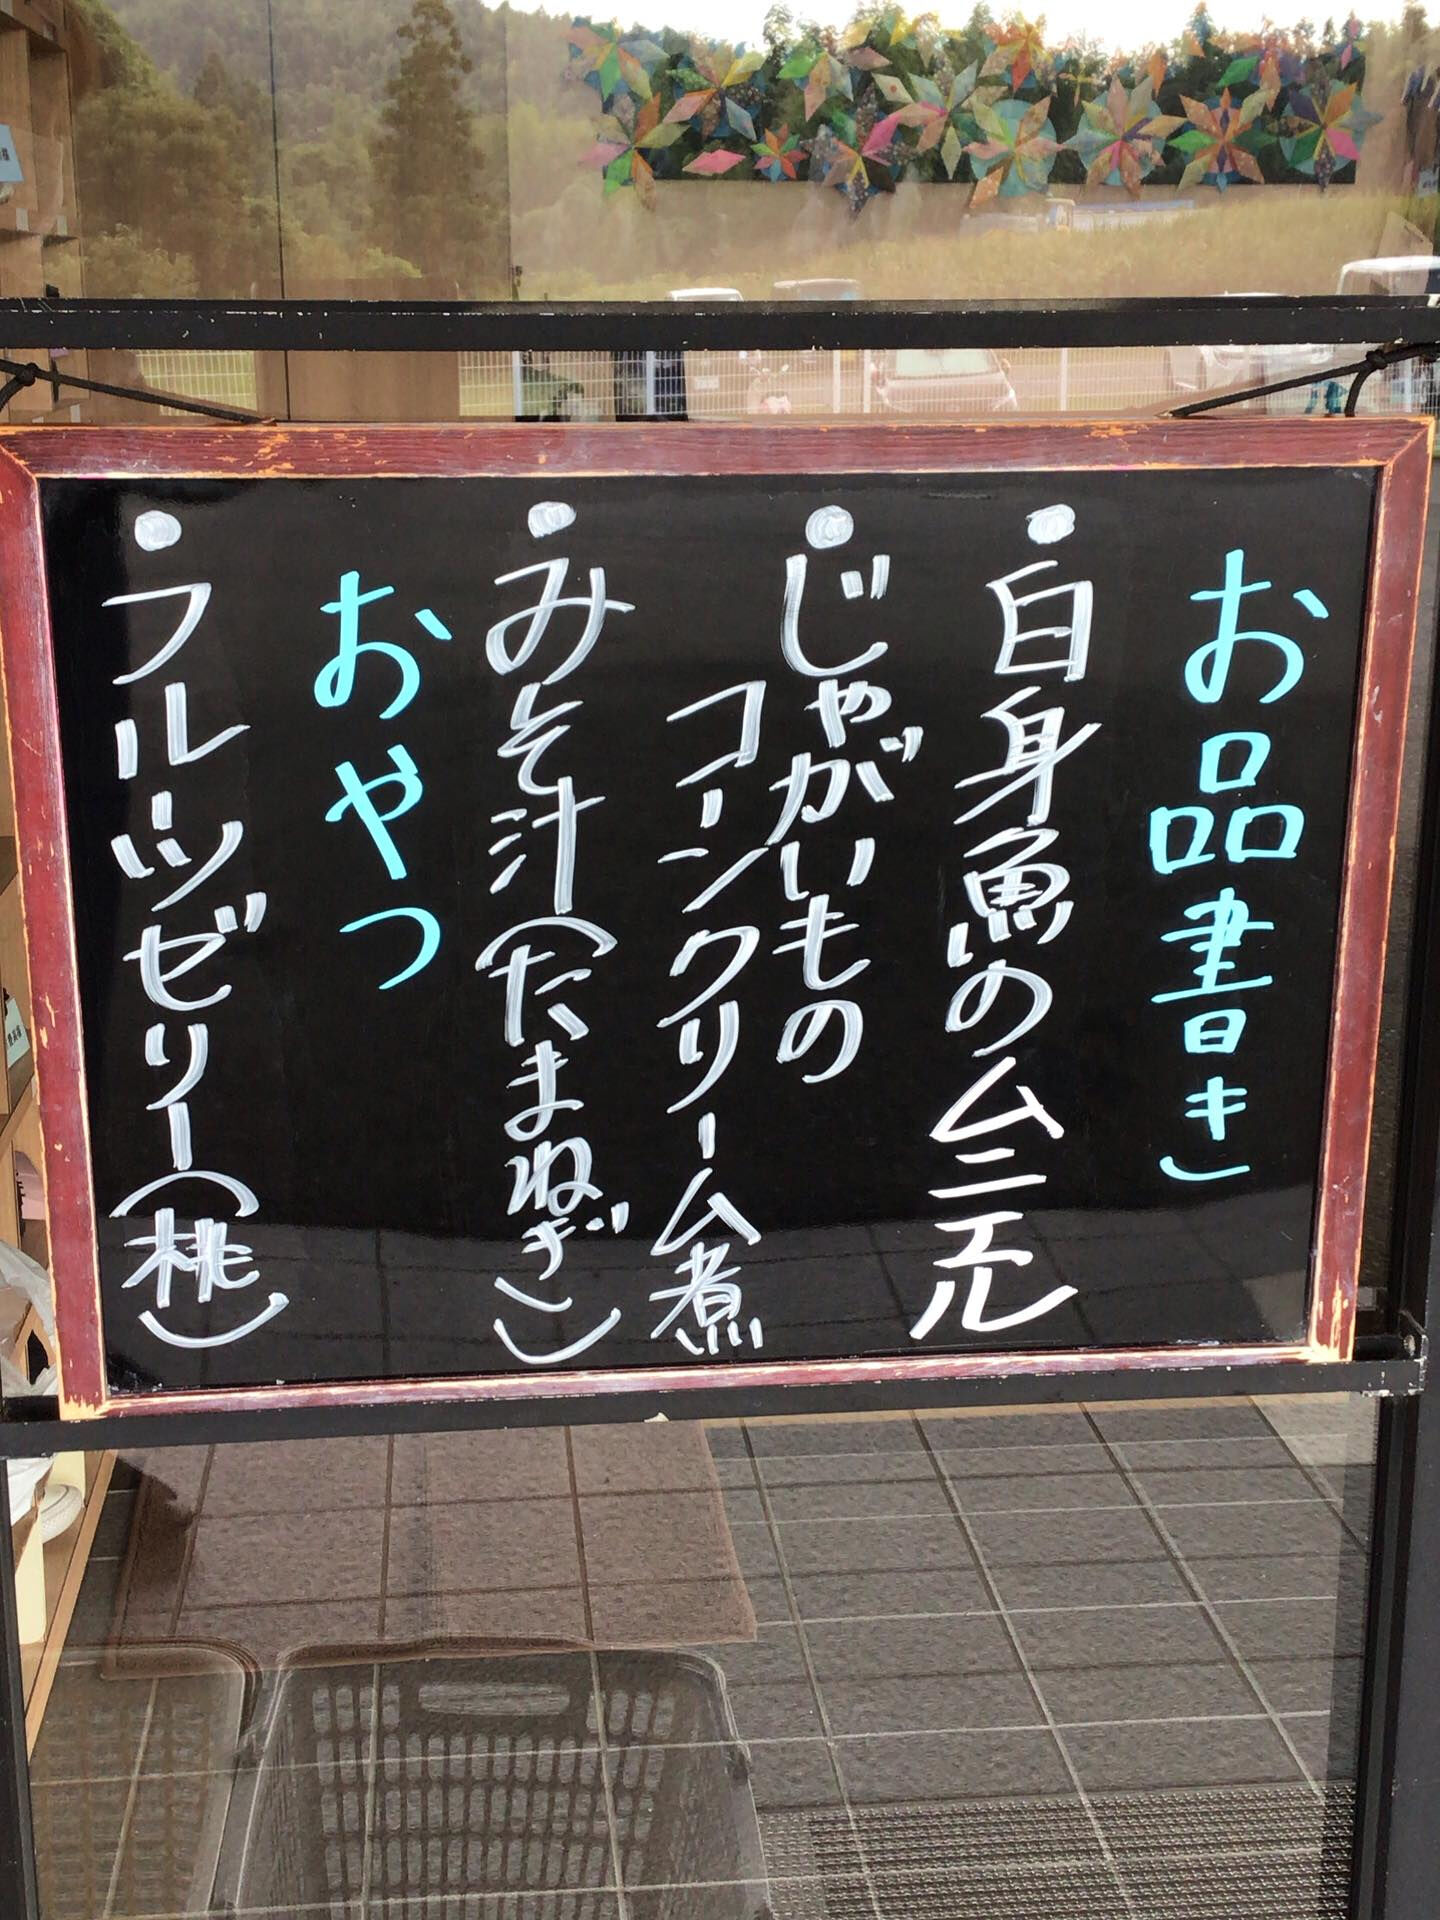 お品書き
●白身魚のムニエル
●じゃがいもの
コーンクリーム煮
●みそ汁(たまねぎ)
おやつ
●フルーツゼリー(桃)